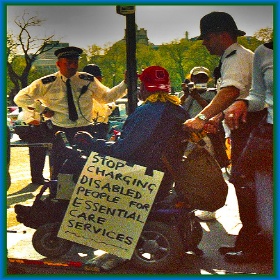 STOP
CHARGING
DISABLED
PEOPLE FOR
ESSENTIAL
CARE
SERVICES